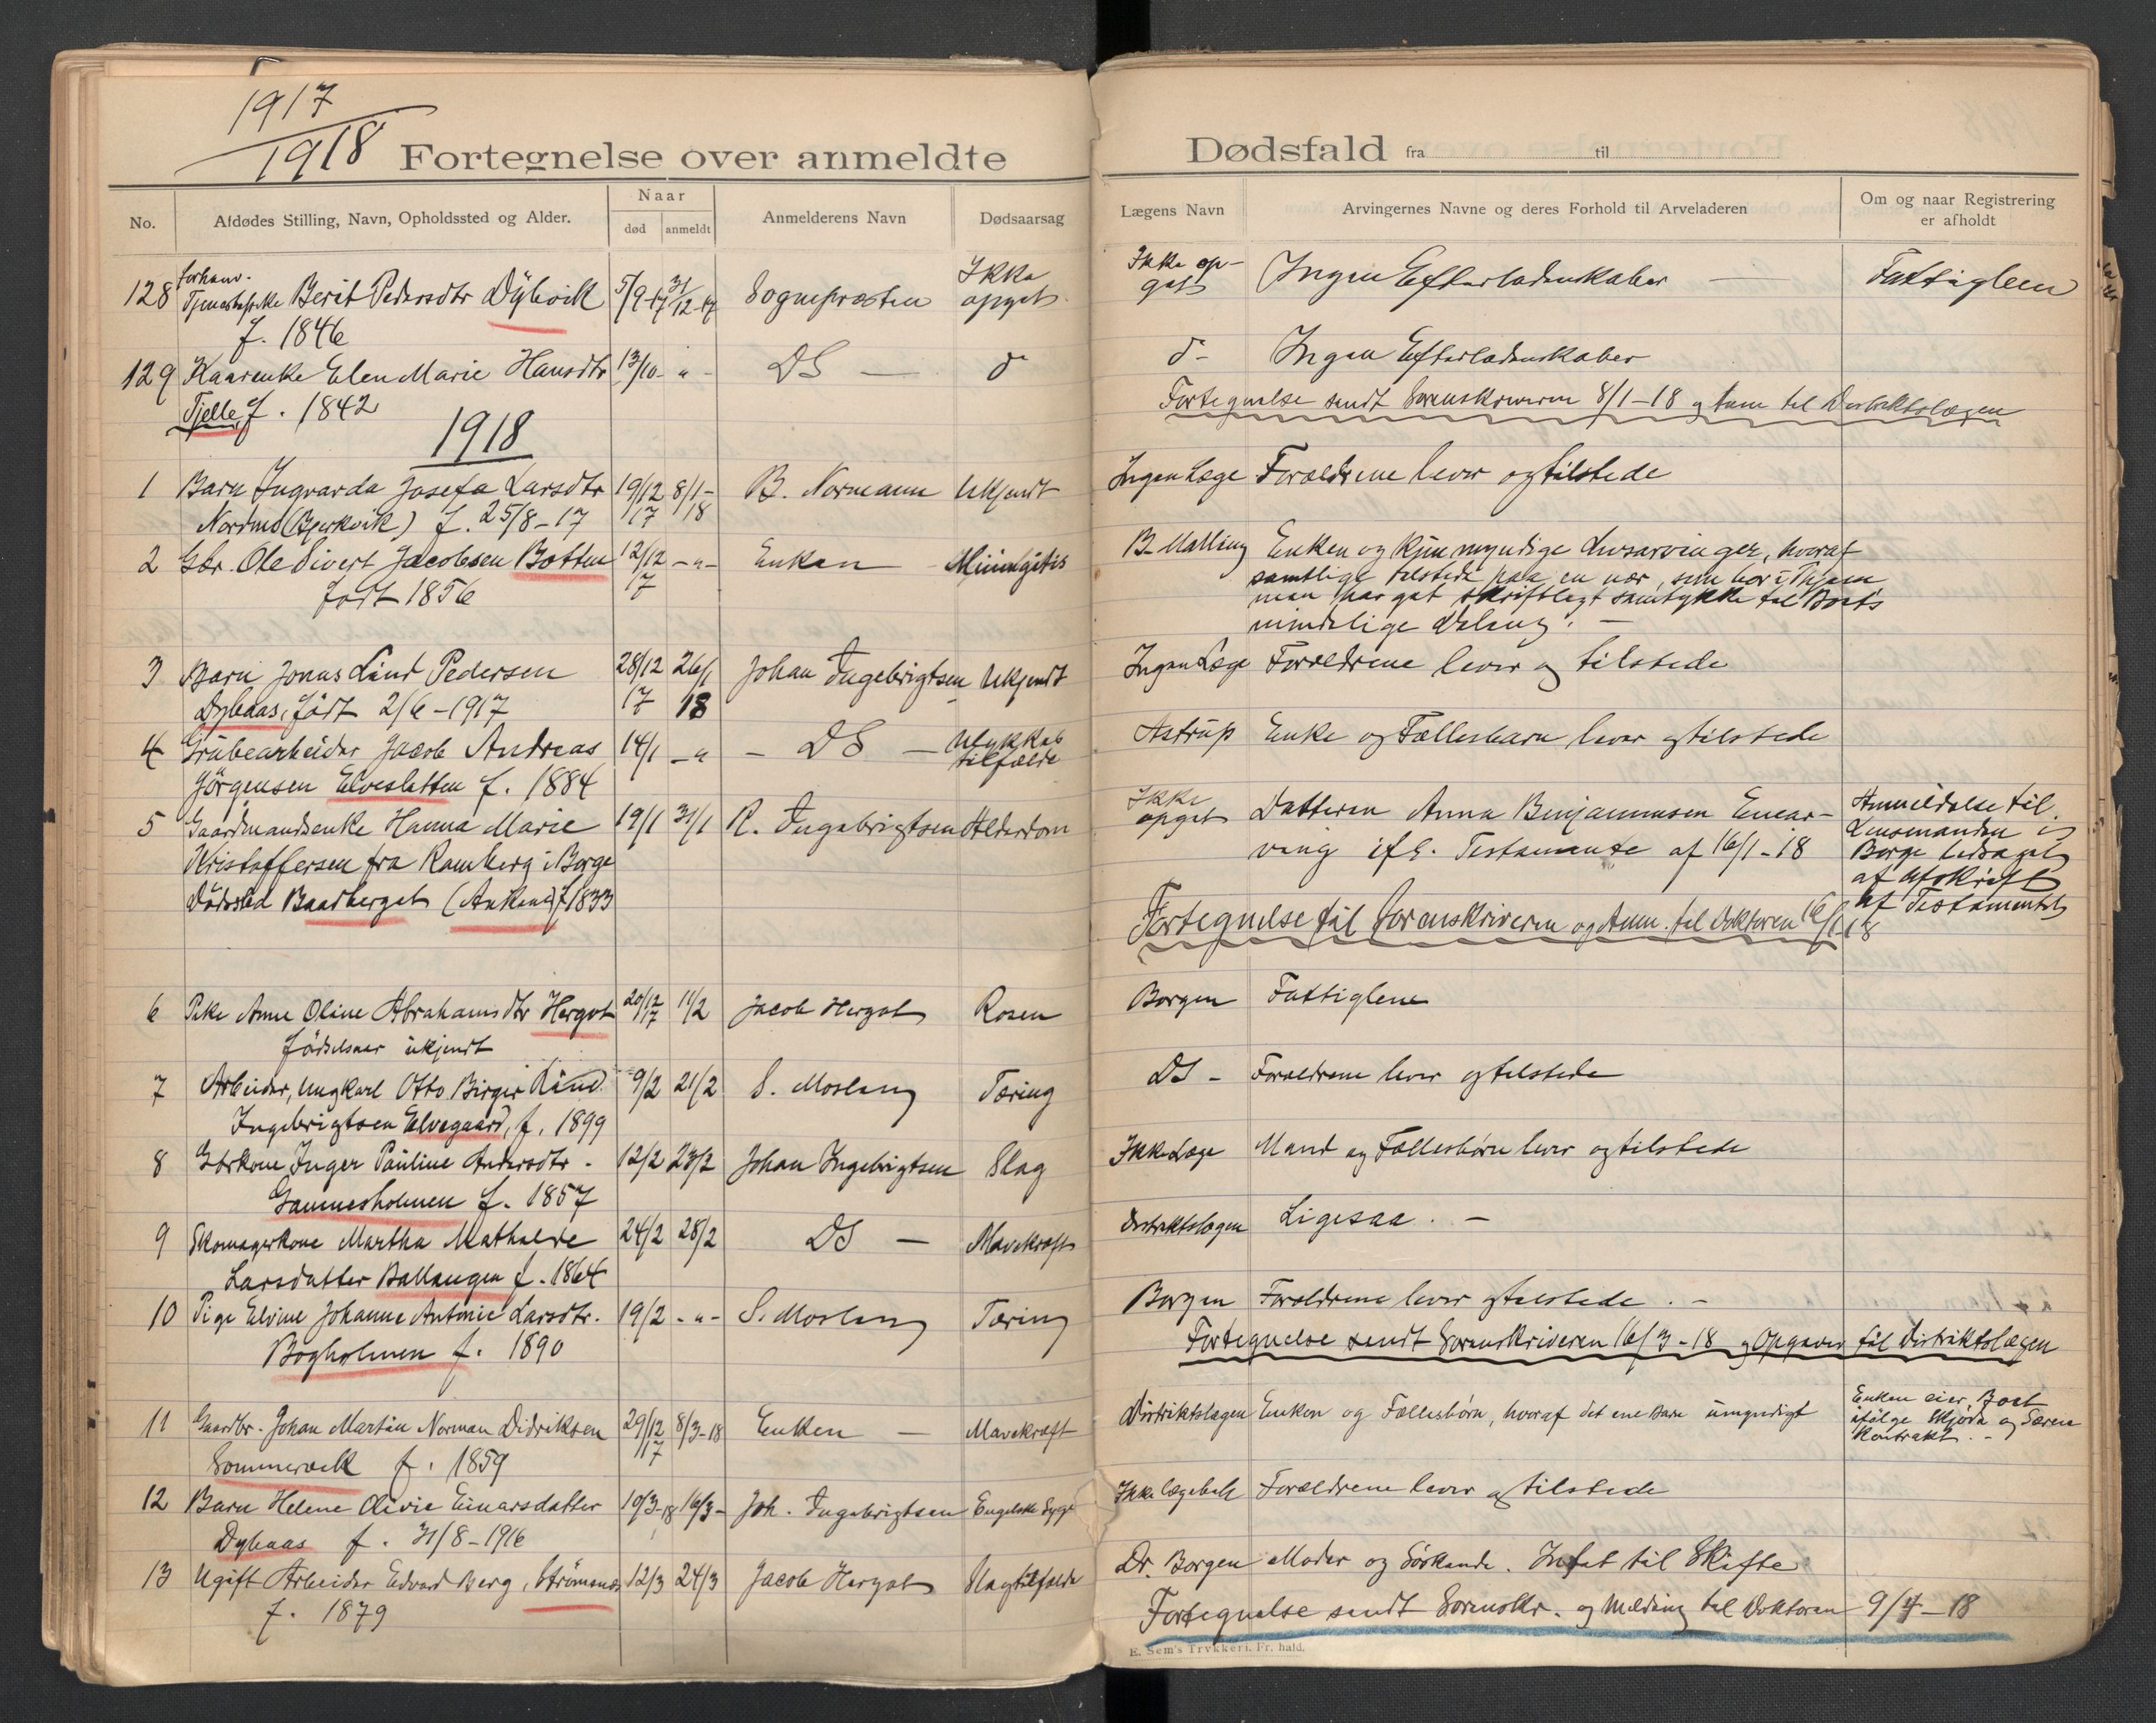 1917
1918
Fortegnelse over anmeldte
Dødsfald fra til
No.
Afdødes Stilling, Navn, Opholdssted og Alder.
Naar
død
anmeldt
Anmelderens Navn
Dødsaarsag
Lægens Navn
Arvingernes Navne og deres Forhold til Arveladeren
Om og naar Registrering
er afholdt
128 forhenv. Berit Pedersdtr Dybvik 5/9-17 31/12-17 Sognepræsten Ikke opget Ikke opget Ingen Efterladenskaber — Fattiglem
f. 1846
129 Kaarenke Elen Marie Hansdtr 13/10- " - DS — do do - Ingen Efterladenskaber
Tjelle f. 1842
Fortegnelse sendt Sorenskriveren 8/1-18 og Distriktslægen
1918
1 Barn Ingvarda Josefa Larsdtr 19/12 17 8/1-18 B. Normann Ukjendt Ingen Læge Forældrene lever og tilstede
Nordmo (Bjerkvik) f. 25/8-17
2 Gbr. Ole Sivert Jacobsen Botten 12/12 17 -"- Enken Miningitis B. Malling Enken og kun myndige Livsarvinger, hvoraf
født 1856
samtlige tilstede paa en nær, som bor i
man har gat skriftlegt samtykke til Boets
mindelige Deling. —
3 Barn Jonas Lind Pedersen 28/12 17 26/1 18 Johan Ingebrigtsen Ukjendt Ingen Læge Forældrene lever og tilstede
Dybaas, født 2/6-1917
4 Grubearbeider Jacob Andreas 14/1 -" - DS — Ulykkestilfælde Astrup Enke og Fællesbarn lever og tilstede
Jörgensen Elvesletten f. 1884
5 Gaardmandsenke Hanna Marie 19/1 31/1 R. Ingebrigtsen Alderdom Ikke opget Datteren Anna Benjaminsen Enear-
Kristoffersen fra Ramberg i Borge
ving ifl. Testamente af 16/1-18
Dödssted Baadberget (Ankenes) f 1833
Anmeldelse til
Lensmanden i
Borge ledsaget
af Afskrift
af Testamentet
Fortegnelse til Sorenskriveren og Anm. til Doktoren
6 Pike Anne Oline Abrahamsdtr Hergot 20/12 17 11/2 Jacob Hergot Rosen Borgen Fattiglem
födselsaar ukjendt
7 Arbeider, Ungkarl Otto Birger Lind 9/2 21/2 S. Moslang Tæring DS - Forældrene lever og tilstede
Ingebrigtsen Elvegaard, f. 1899
8 Gbrkone Inger Pauline Andersdtr. 12/2 23/2 Johan Ingebrigtsen Slag Ikke Læge Mand og Fællesbörn lever og tilstede
Gammesholmen f. 1857
9 Skomagerkone Martha Mathilde 24/2 28/2 DS — Mavekræft Distriktslægen Ligesaa. —
Larsdatter Ballangen f. 1864
10 Pige Elvine Johanne Antonie Larsdtr. 19/2 -"- S. Moslang Tæring Borgen Forældrene lever og tilstede. -
Bogholmen f. 1890
Fortegnelse sendt Sorenskriveren 16/3-18 og Opgaver til Distriktslægen
11 Gaardbr. Johan Martin Norman Didriksen 29/12 17 8/3-18 Enken — Mavekræft Distriktslægen Enken og Fællesbörn, hvoraf det ene Barn umyndigt
Sommervik f. 1859
Enken eier Boet
ifölge Skjöde og Særeie
Kontrakt. -
12 Barn Helene Olivie Einarsdatter 10/3-18 16/3- Joh. Ingebrigtsen Engelske Syge Ikke lægebeh Forældrene lever og tilstede
Dybaas f. 31/8-1916
13 Ugift Arbeider Edvard Berg, Strömsnes 12/3 24/3 Jacob Hergot Slagtilfælde Dr. Borgen Moder og Söskende. Intet til Skifte
f. 1879
Fortegnelse sendt Sorenskr. og Melding til Doktoren 9/4-18
E. Sem's Trykkeri, Fr. hald.